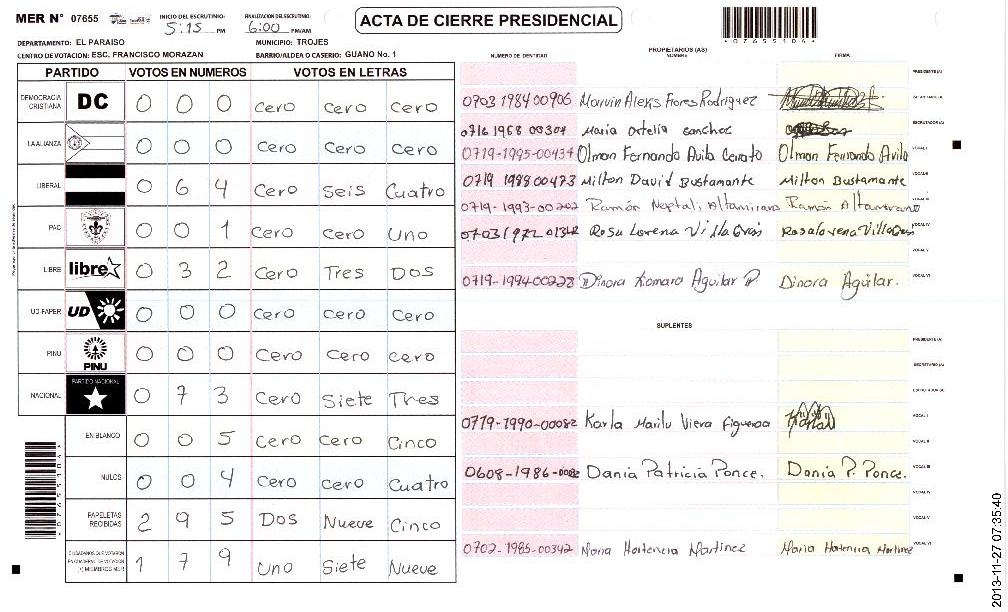 MER N° 07655
INICIO DEL ESCRUTINIO: 5:15 PM
FINALIZACION DEL ESCRUTINIO: 6:00 PM/AM
ACTA DE CIERRE PRESIDENCIAL
DEPARTAMENTO: EL PARAISO
MUNICIPIO: TROJES
CENTRO DE VOTACION: ESC. FRANCISCO MORAZAN
BARRIO/ALDEA O CASERIO: GUANO No. 1
PARTIDO VOTOS EN NUMEROS VOTOS EN LETRAS
DEMOCRACIA CRISTIANA DC 0 0 0 Cero Cero Cero
LA ALIANZA 0 0 0 Cero Cero Cero
LIBERAL 0 6 4 Cero Seis Cuatro
PAC 0 0 1 Cero Cero Uno
LIBRE libre 0 3 2 Cero Tres Dos
UD-FAPER UD 0 0 0 Cero Cero Cero
PINU PINU 0 0 0 Cero Cero Cero
NACIONAL PARTIDO NACIONAL 0 7 3 Cero Siete Tres
EN BLANCO 0 0 5 Cero Cero Cinco
NULOS 0 0 4 Cero Cero Cuatro
PAPELETAS RECIBIDAS 2 9 5 Dos Nueve Cinco
CIUDADANOS QUE VOTARON EN CUADERNO DE VOTACION (+) MIEMBROS MER 1 7 9 Uno Siete Nueve
PROPIETARIOS (AS)
NUMERO DE IDENTIDAD NOMBRE FIRMA
PRESIDENTE (A)
0703 1984 00906 Marvin Alexis Flores Rodriguez SECRETARIO (A)
0716 1968 00304 Maria Ofelia Sanchez ESCRUTADOR (A)
0719-1995-00434 Olman Fernando Avila Cerrato Olman Fernando Avila VOCAL I
0719 1988 00473 Milton David Bustamante Milton Bustamante VOCAL II
0719-1993-00202 Ramón Neptali Altamirano Ramón Altamirano
0703 1972 01342 Rosa Lorena Villa Gras Rosa Lorena Villa Gras VOCAL IV
VOCAL V
0719-1994 00228 Dinora Xomara Aguilar P. Dinora Aguilar. VOCAL VI
SUPLENTES
PRESIDENTE (A)
SECRETARIO (A)
ESCRUTADOR (A)
0719-1990-00082 Karla Marilu Viera Figueroa VOCAL I
VOCAL II
0608-1986- Dania Patricia Ponce. Dania P. Ponce. VOCAL III
VOCAL IV
VOCAL V
0702-1985-00342 Maria Hortencia Martinez Maria Hortencia Martinez VOCAL VI
2013-11-27 07:35:40